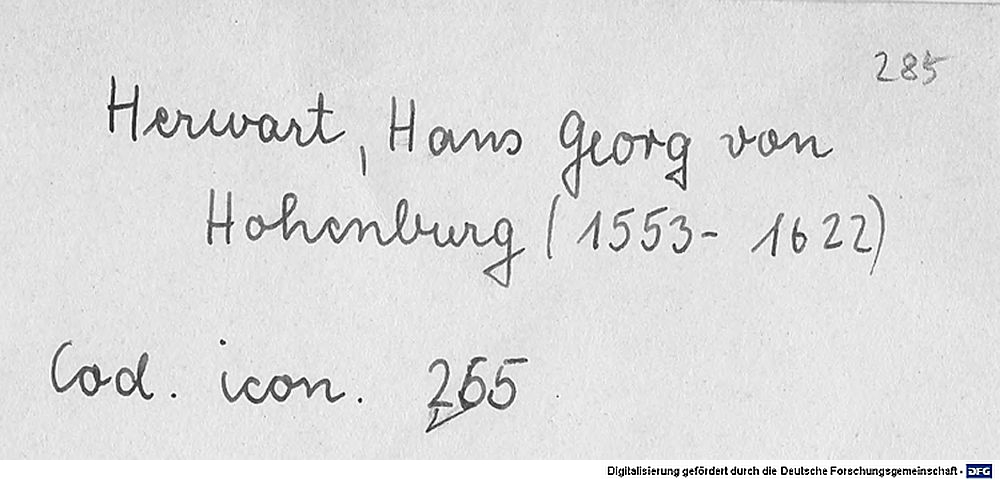 285
Herwart, Hans Georg von
Hohenburg (1553 - 1622)
Cod. icon. 265
Digitalisierung gefördert durch die Deutsche Forschungsgemeinschaft - DFG